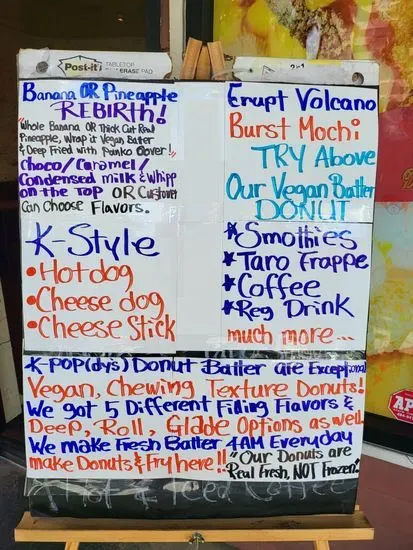 Post-it
TABLETOP
ERASE PAD
Banana OR Pineapple
REBIRTH!
"Whole Banana OR Thick Cut Real
Pineapple, Wrap it Vegan Batter
& Deep Fried with Panko Cover!
Choco/Caramel/
Condensed milk & Whipp
on the Top OR Customer
Can Choose Flavors.
K-Style
•Hotdog
•Cheese dog
•Cheese Stick
Erupt Volcano
Burst Mochi
TRY Above
Our Vegan Batter
DONUT
*Smothies
*Taro Frappe
*Coffee
*Reg Drink
much more...
K-POP(dy's) Donut Batter are Exceptional
Vegan, Chewing Texture Donuts!
We got 5 Different Filling Flavors &
Deep, Roll, Glade Options as well.
We make Fresh Batter 4AM Everyday
make Donuts & Fry here!! "Our Donuts are
Real Fresh, NOT Frozen"
Hot & Iced Coffee